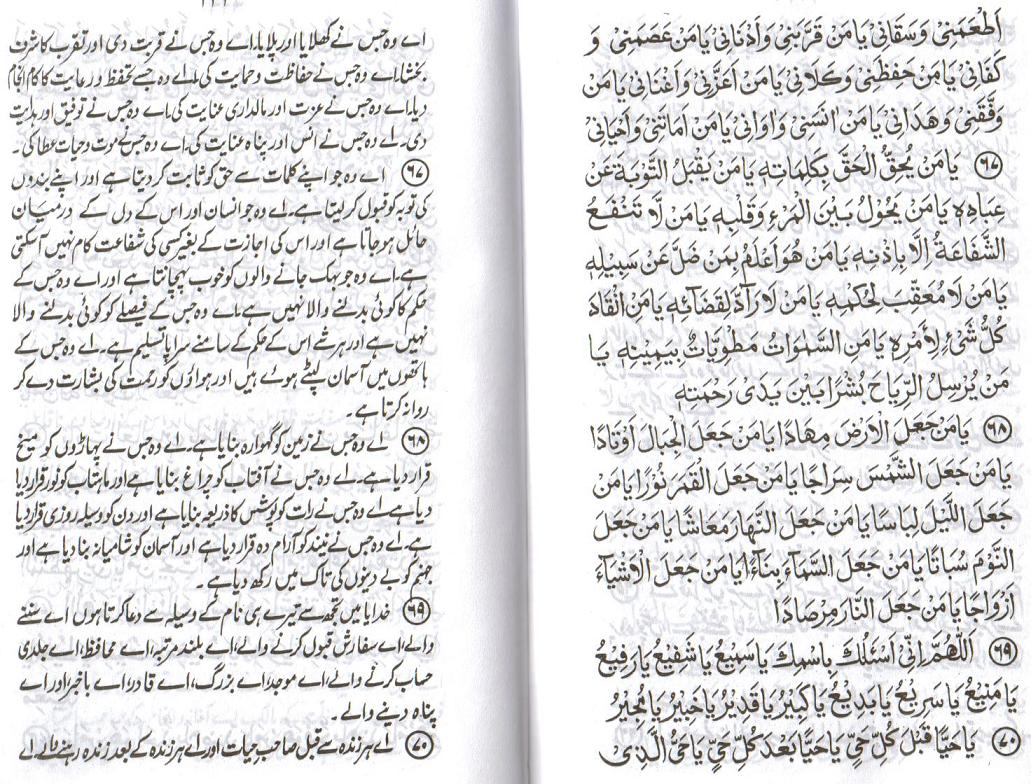 أَطْعَمَنِیْ وَسَقَانِیْ یَا مَنْ قَرَّبَنِیْ وَأَدْنَانِیْ یَا مَنْ عَصَمَنِیْ وَ
كَفَانِیْ یَا مَنْ حَفِظَنِیْ وَكَلَانِیْ یَا مَنْ اَعَزَّنِیْ وَاَغْنَانِیْ یَا مَنْ
وَفَّقَنِیْ وَهَدَانِیْ یَا مَنْ اٰنَسَنِیْ وَاٰوَانِیْ یَا مَنْ اَمَاتَنِیْ وَاَحْیَانِیْ
۶۷ یَا مَنْ یُحِقُّ الْحَقَّ بِكَلِمَاتِهٖ یَا مَنْ یَقْبَلُ التَّوْبَةَ عَنْ
عِبَادِهٖ یَا مَنْ یَحُوْلُ بَیْنَ الْمَرْءِ وَقَلْبِهٖ یَا مَنْ لَّا تَنْفَعُ
الشَّفَاعَةُ اِلَّا بِاِذْنِهٖ یَا مَنْ هُوَ اَعْلَمُ بِمَنْ ضَلَّ عَنْ سَبِیْلِهٖ
یَا مَنْ لَا مُعَقِّبَ لِحُكْمِهٖ یَا مَنْ لَا رَآدَّ لِقَضَآئِهٖ یَا مَنِ انْقَادَ
كُلُّ شَیْءٍ لِاَمْرِهٖ یَا مَنِ السَّمٰوَاتُ مَطْوِیَّاتٌ بِیَمِیْنِهٖ یَا
مَنْ یُرْسِلُ الرِّیَاحَ بُشْرًا بَیْنَ یَدَیْ رَحْمَتِهٖ
۶۸ یَا مَنْ جَعَلَ الْاَرْضَ مِهَادًا یَا مَنْ جَعَلَ الْجِبَالَ اَوْتَادًا
یَا مَنْ جَعَلَ الشَّمْسَ سِرَاجًا یَا مَنْ جَعَلَ الْقَمَرَ نُوْرًا یَا مَنْ
جَعَلَ اللَّیْلَ لِبَاسًا یَا مَنْ جَعَلَ النَّهَارَ مَعَاشًا یَا مَنْ جَعَلَ
النَّوْمَ سُبَاتًا یَا مَنْ جَعَلَ السَّمَآءَ بِنَآءً یَا مَنْ جَعَلَ الْاَشْیَآءَ
اَزْوَاجًا یَا مَنْ جَعَلَ النَّارَ مِرْصَادًا
۶۹ اَللّٰهُمَّ اِنِّیْ اَسْئَلُكَ بِاسْمِكَ یَا سَمِیْعُ یَا شَفِیْعُ یَا رَفِیْعُ
یَا مَنِیْعُ یَا سَرِیْعُ یَا بَدِیْعُ یَا كَبِیْرُ یَا قَدِیْرُ یَا خَبِیْرُ یَا مُجِیْرُ
۷۰ یَا حَیًّا قَبْلَ كُلِّ حَیٍّ یَا حَیًّا بَعْدَ كُلِّ حَیٍّ یَا حَیُّ الَّذِیْ
اے وہ جس نے کھلایا اور پلایا۔ اے وہ جس نے قربت دی اور تقرب کا شرف
بخشا۔ اے وہ جس نے حفاظت و حمایت کی۔ اے وہ جسے تحفظ و رعایت کا کام انجام
دیا۔ اے وہ جس نے عزت اور مالداری عنایت کی۔ اے وہ جس نے توفیق اور ہدایت
دی۔ اے وہ جس نے انس اور پناہ عنایت کی۔ اے وہ جس نے موت و حیات عطا کی۔
۶۷ اے وہ جو اپنے کلمات سے حق کو ثابت کر دیتا ہے اور اپنے بندوں
کی توبہ کو قبول کر لیتا ہے۔ اے وہ جو انسان اور اس کے دل کے درمیان
حائل ہو جاتا ہے اور اس کی اجازت کے بغیر کسی کی شفاعت کام نہیں آ سکتی
ہے۔ اے وہ جو بہک جانے والوں کو خوب پہچانتا ہے اور اے وہ جس کے
حکم کا کوئی بدلنے والا نہیں ہے۔ اے وہ جس کے فیصلے کو کوئی بدلنے والا
نہیں ہے اور ہر شے اس کے حکم کے سامنے سراپا تسلیم ہے۔ اے وہ جس کے
ہاتھوں میں آسمان لپٹے ہوئے ہیں اور ہواؤں کو رحمت کی بشارت دے کر
روانہ کرتا ہے۔
۶۸ اے وہ جس نے زمین کو گہوارہ بنایا ہے۔ اے وہ جس نے پہاڑوں کو میخ
قرار دیا ہے۔ اے وہ جس نے آفتاب کو چراغ بنایا ہے اور ماہتاب کو نور قرار دیا
دیا ہے اے وہ جس نے رات کو پوشش کا ذریعہ بنایا ہے اور دن کو وسیلہ روزی قرار دیا
ہے۔ اے وہ جس نے نیند کو آرام دہ قرار دیا ہے اور آسمان کو شامیانہ بنا دیا ہے اور
جہنم کو بے دینوں کی تاک میں رکھ دیا ہے۔
۶۹ خدایا میں تجھ سے تیرے ہی نام کے وسیلہ سے دعا کرتا ہوں اے سننے
والے، اے سفارش قبول کرنے والے، اے بلند مرتبہ، اے محافظ، اے جلدی
حساب کرنے والے، اے موجد، اے بزرگ، اے قادر، اے باخبر اور اے
پناہ دینے والے۔
۷۰ اے ہر زندہ سے قبل صاحب حیات اور اے ہر زندہ کے بعد زندہ رہنے والے۔ اے